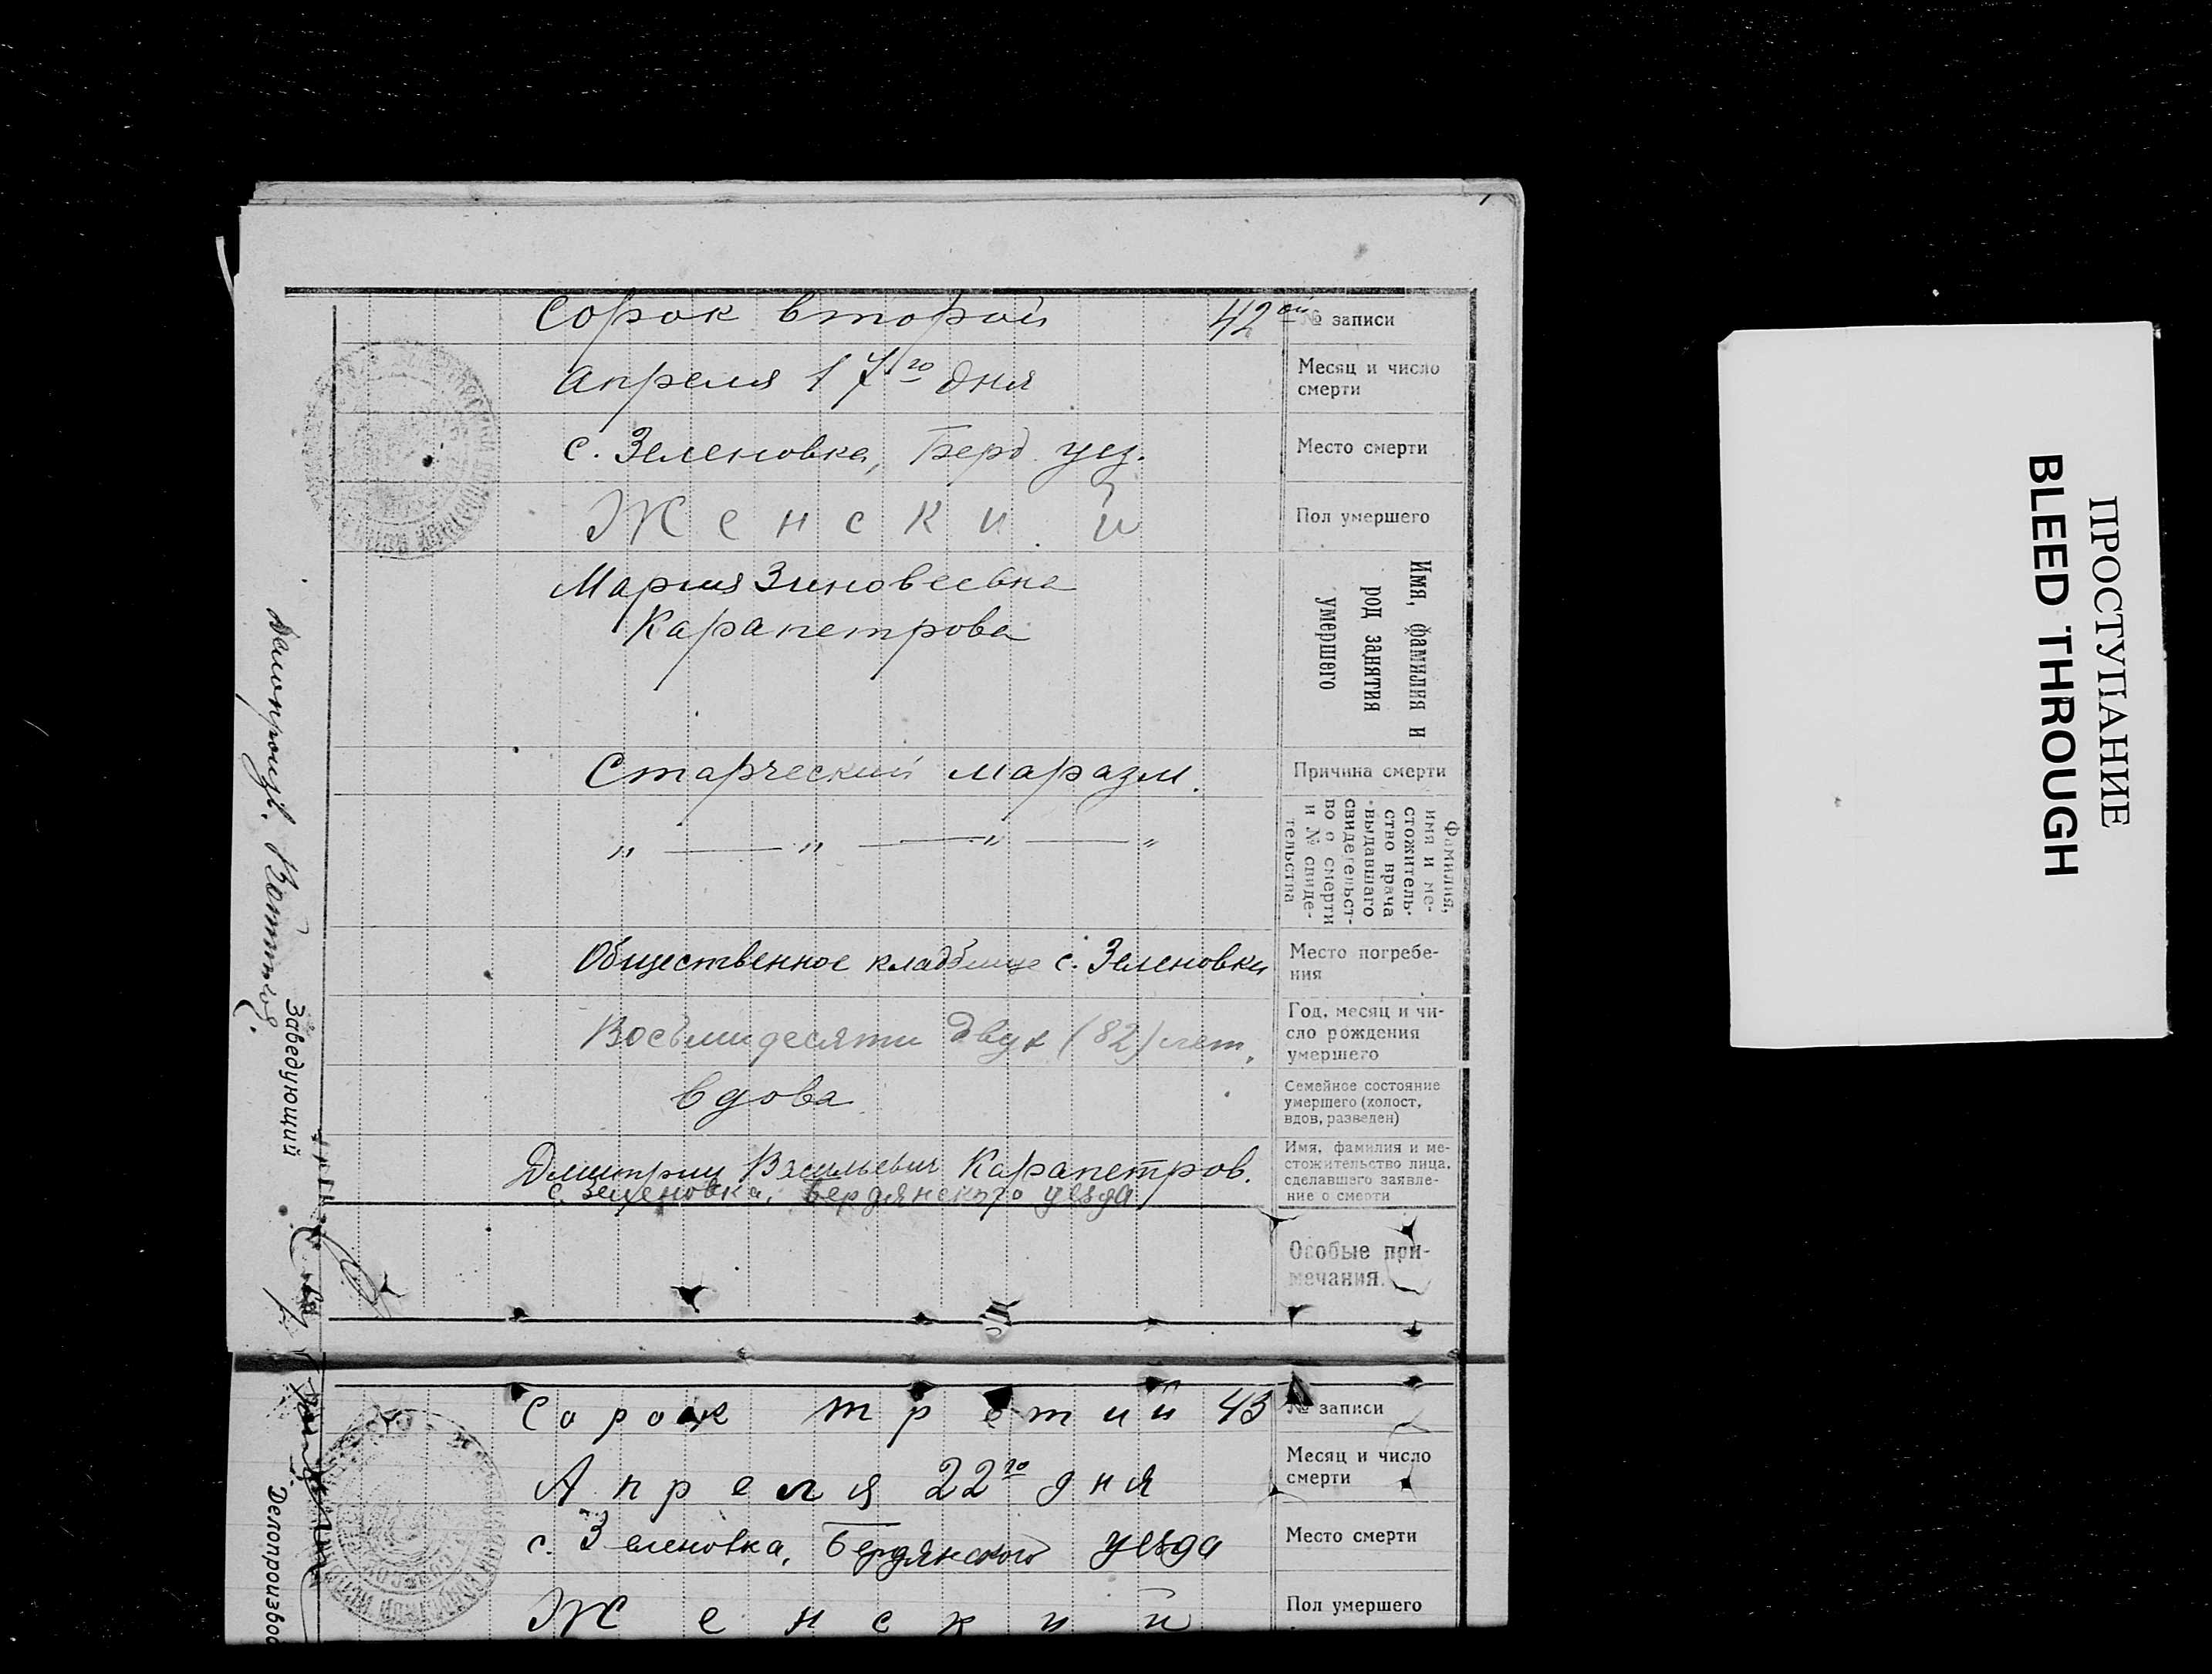 Сорок второй 42ой № записи
Апреля 17го дня Месяц и число
смерти
с. Зеленовка, Берд. уез. Место смерти
Женский Пол умершего
Мария Зиновеевна
Карапетрова
Имя, фамилия и
род занятия
умершего
Старческий маразм. Причина смерти
Фамилия,
имя и ме-
стожитель-
ство врача
выдавшаго
свидетельст-
во о смерти
и № свиде-
тельства
" — " — " — "
Общественное кладбище с. Зеленовки Место погребе-
ния
Восьмидесяти двух (82) лет. Год, месяц и чи-
сло рождения
умершего
вдова Семейное состояние
умершего (холост,
вдов, разведен)
Дмитрий Васильевич Карапетров.
с. Зеленовка, Бердянского уезда
Имя, фамилия и ме-
стожительство лица,
сделавшего заявле-
ние о смерти
Особые при-
мечания.
Заведующий
Сорок третий 43 № записи
Апреля 22го дня Месяц и число
смерти
с. Зеленовка, Бердянского уезда Место смерти
Женский Пол умершего
Делопроизвод
ПРОСТУПАНИЕ
BLEED THROUGH